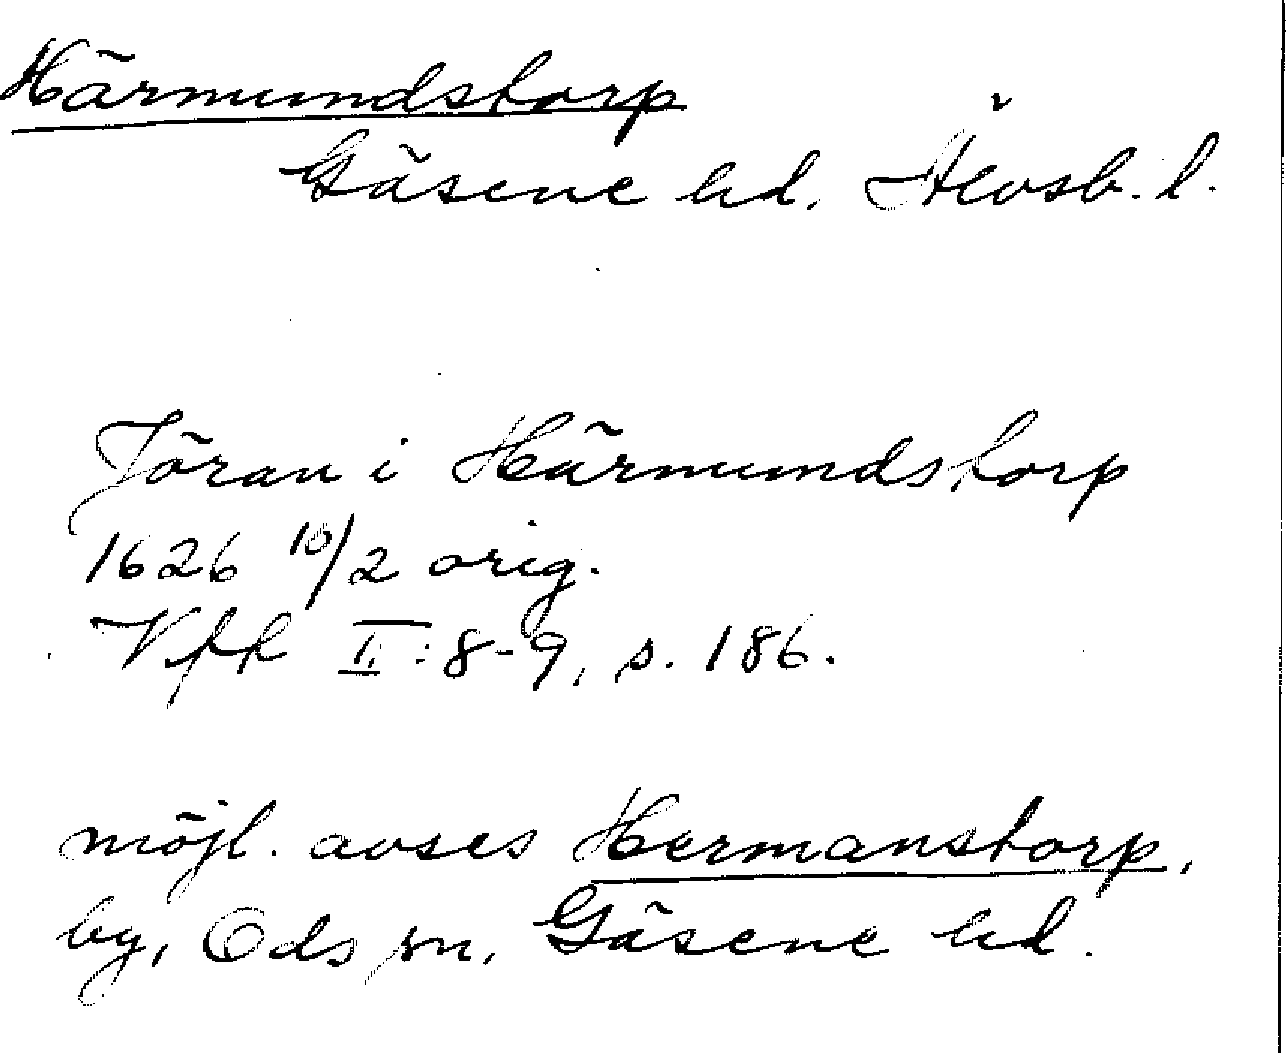 Härmundstorp
Gäsene hd. Älvsb. l.
Jöran i Härmundstorp
1626 10/2 orig.
Vfh II:8-9, s. 186.
möjl. avses Hermanstorp,
by, Ods sn, Gäsene hd.